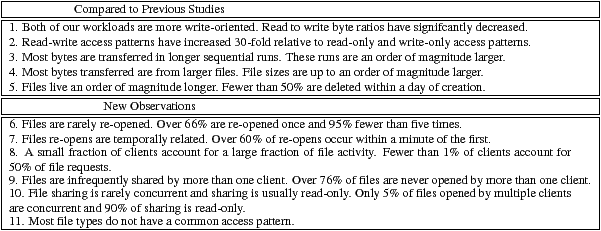 Compared to Previous Studies
1. Both of our workloads are more write-oriented. Read to write byte ratios have signifcantly decreased.
2. Read-write access patterns have increased 30-fold relative to read-only and write-only access patterns.
3. Most bytes are transferred in longer sequential runs. These runs are an order of magnitude larger.
4. Most bytes transferred are from larger files. File sizes are up to an order of magnitude larger.
5. Files live an order of magnitude longer. Fewer than 50% are deleted within a day of creation.
New Observations
6. Files are rarely re-opened. Over 66% are re-opened once and 95% fewer than five times.
7. Files re-opens are temporally related. Over 60% of re-opens occur within a minute of the first.
8. A small fraction of clients account for a large fraction of file activity. Fewer than 1% of clients account for
50% of file requests.
9. Files are infrequently shared by more than one client. Over 76% of files are never opened by more than one client.
10. File sharing is rarely concurrent and sharing is usually read-only. Only 5% of files opened by multiple clients
are concurrent and 90% of sharing is read-only.
11. Most file types do not have a common access pattern.